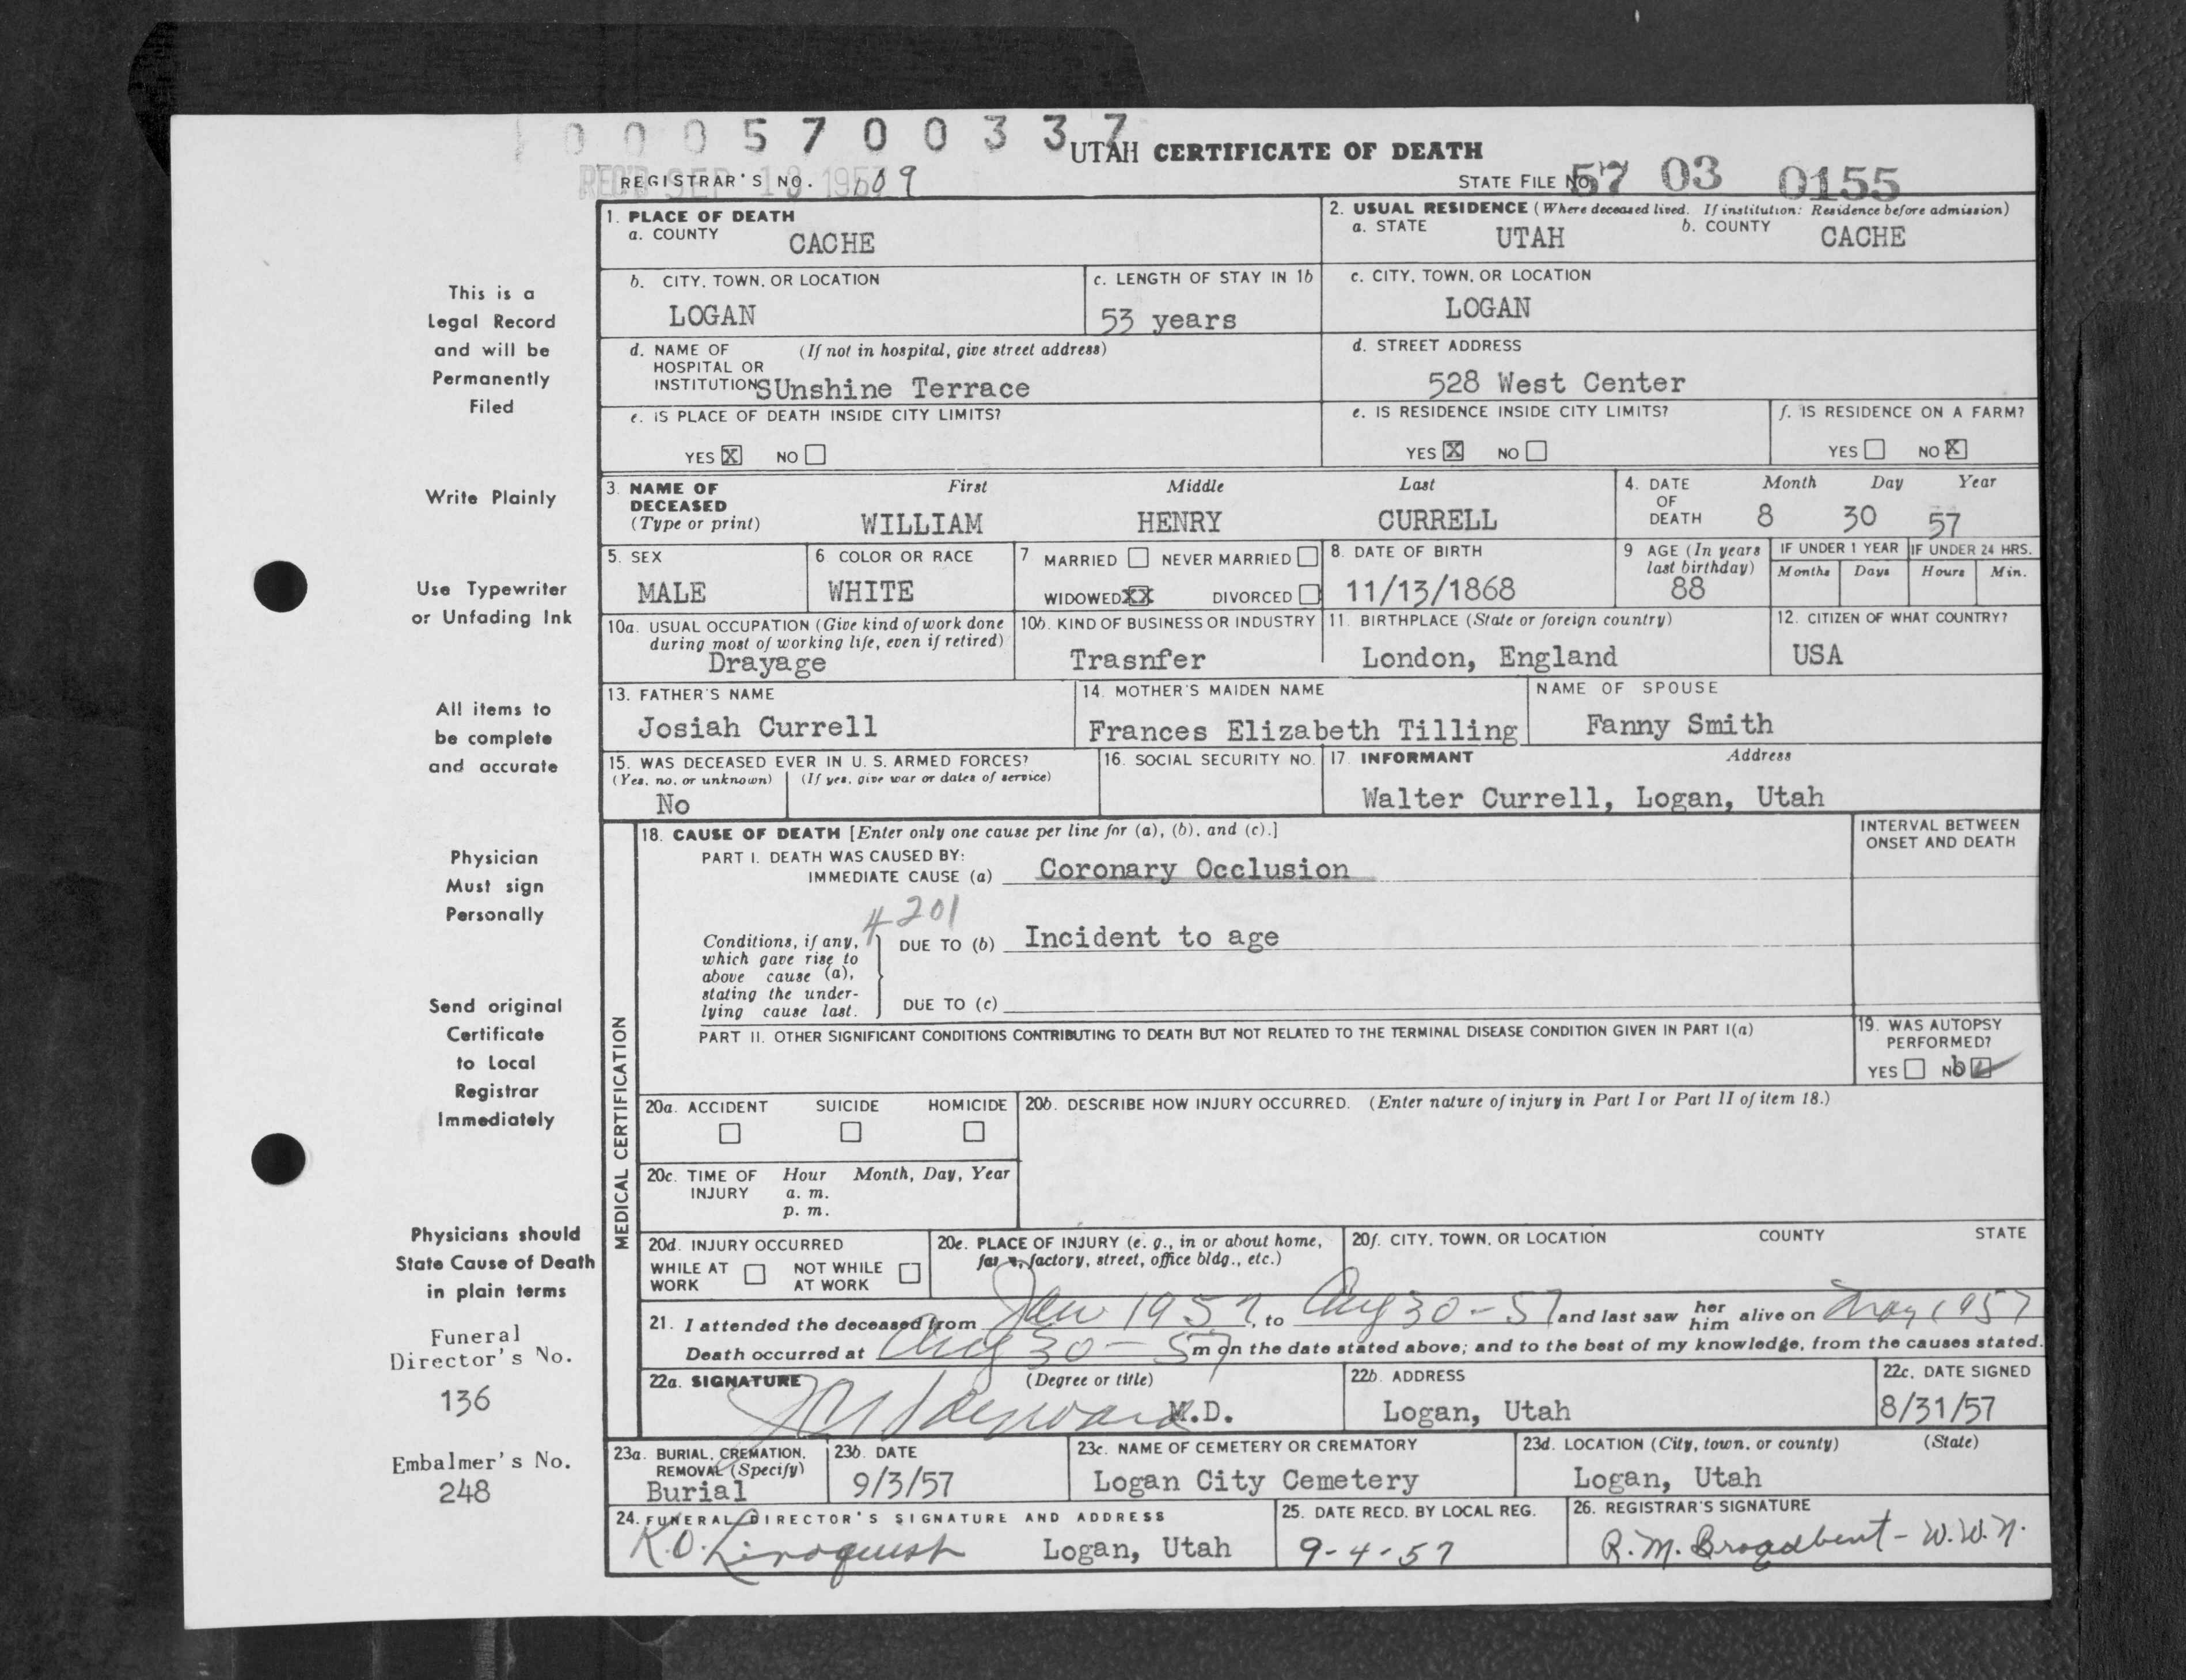 0 0 0 5 7 0 0 3 3 7
UTAH CERTIFICATE OF DEATH
REC'D SEP 18 195
REGISTRAR'S NO. 609
STATE FILE NO. 57 03 0155
1. PLACE OF DEATH
a. COUNTY CACHE
2. USUAL RESIDENCE (Where deceased lived. If institution: Residence before admission)
a. STATE UTAH b. COUNTY CACHE
b. CITY, TOWN, OR LOCATION LOGAN
c. LENGTH OF STAY IN 1b 53 years
c. CITY, TOWN, OR LOCATION LOGAN
d. NAME OF HOSPITAL OR INSTITUTION (If not in hospital, give street address) SUnshine Terrace
d. STREET ADDRESS 528 West Center
e. IS PLACE OF DEATH INSIDE CITY LIMITS?
YES X NO
e. IS RESIDENCE INSIDE CITY LIMITS?
YES X NO
f. IS RESIDENCE ON A FARM?
YES NO X
3. NAME OF DECEASED (Type or print)
First Middle Last
WILLIAM HENRY CURRELL
4. DATE OF DEATH
Month Day Year
8 30 57
5. SEX MALE
6. COLOR OR RACE WHITE
7 MARRIED NEVER MARRIED
WIDOWED XX DIVORCED
8. DATE OF BIRTH 11/13/1868
9 AGE (In years last birthday) 88
IF UNDER 1 YEAR
Months Days
IF UNDER 24 HRS.
Hours Min.
10a. USUAL OCCUPATION (Give kind of work done during most of working life, even if retired) Drayage
10b. KIND OF BUSINESS OR INDUSTRY Trasnfer
11. BIRTHPLACE (State or foreign country) London, England
12. CITIZEN OF WHAT COUNTRY? USA
13. FATHER'S NAME Josiah Currell
14. MOTHER'S MAIDEN NAME Frances Elizabeth Tilling
NAME OF SPOUSE Fanny Smith
15. WAS DECEASED EVER IN U. S. ARMED FORCES?
(Yes, no, or unknown) (If yes, give war or dates of service)
No
16. SOCIAL SECURITY NO.
17. INFORMANT Address
Walter Currell, Logan, Utah
MEDICAL CERTIFICATION
18. CAUSE OF DEATH [Enter only one cause per line for (a), (b), and (c).]
INTERVAL BETWEEN ONSET AND DEATH
PART I. DEATH WAS CAUSED BY:
IMMEDIATE CAUSE (a) Coronary Occlusion
4201
Conditions, if any, which gave rise to above cause (a), stating the underlying cause last.
DUE TO (b) Incident to age
DUE TO (c)
PART II. OTHER SIGNIFICANT CONDITIONS CONTRIBUTING TO DEATH BUT NOT RELATED TO THE TERMINAL DISEASE CONDITION GIVEN IN PART I(a)
19. WAS AUTOPSY PERFORMED?
YES NO
20a. ACCIDENT SUICIDE HOMICIDE
20b. DESCRIBE HOW INJURY OCCURRED. (Enter nature of injury in Part I or Part II of item 18.)
20c. TIME OF INJURY Hour Month, Day, Year
a. m.
p. m.
20d. INJURY OCCURRED
WHILE AT WORK NOT WHILE AT WORK
20e. PLACE OF INJURY (e. g., in or about home, farm, factory, street, office bldg., etc.)
20f. CITY, TOWN, OR LOCATION COUNTY STATE
21. I attended the deceased from Jan 1957, to Aug 30-57 and last saw her him alive on May 1957
Death occurred at Aug 30-57 m on the date stated above; and to the best of my knowledge, from the causes stated.
22a. SIGNATURE (Degree or title)
M.D.
22b. ADDRESS Logan, Utah
22c. DATE SIGNED 8/31/57
23a. BURIAL, CREMATION, REMOVAL (Specify) Burial
23b. DATE 9/3/57
23c. NAME OF CEMETERY OR CREMATORY Logan City Cemetery
23d. LOCATION (City, town, or county) (State)
Logan, Utah
24. FUNERAL DIRECTOR'S SIGNATURE AND ADDRESS
K.O. Lindquist Logan, Utah
25. DATE RECD. BY LOCAL REG. 9-4-57
26. REGISTRAR'S SIGNATURE R.M. Broadbent - W.W.N.
This is a
Legal Record
and will be
Permanently
Filed
Write Plainly
Use Typewriter
or Unfading Ink
All items to
be complete
and accurate
Physician
Must sign
Personally
Send original
Certificate
to Local
Registrar
Immediately
Physicians should
State Cause of Death
in plain terms
Funeral
Director's No.
136
Embalmer's No.
248